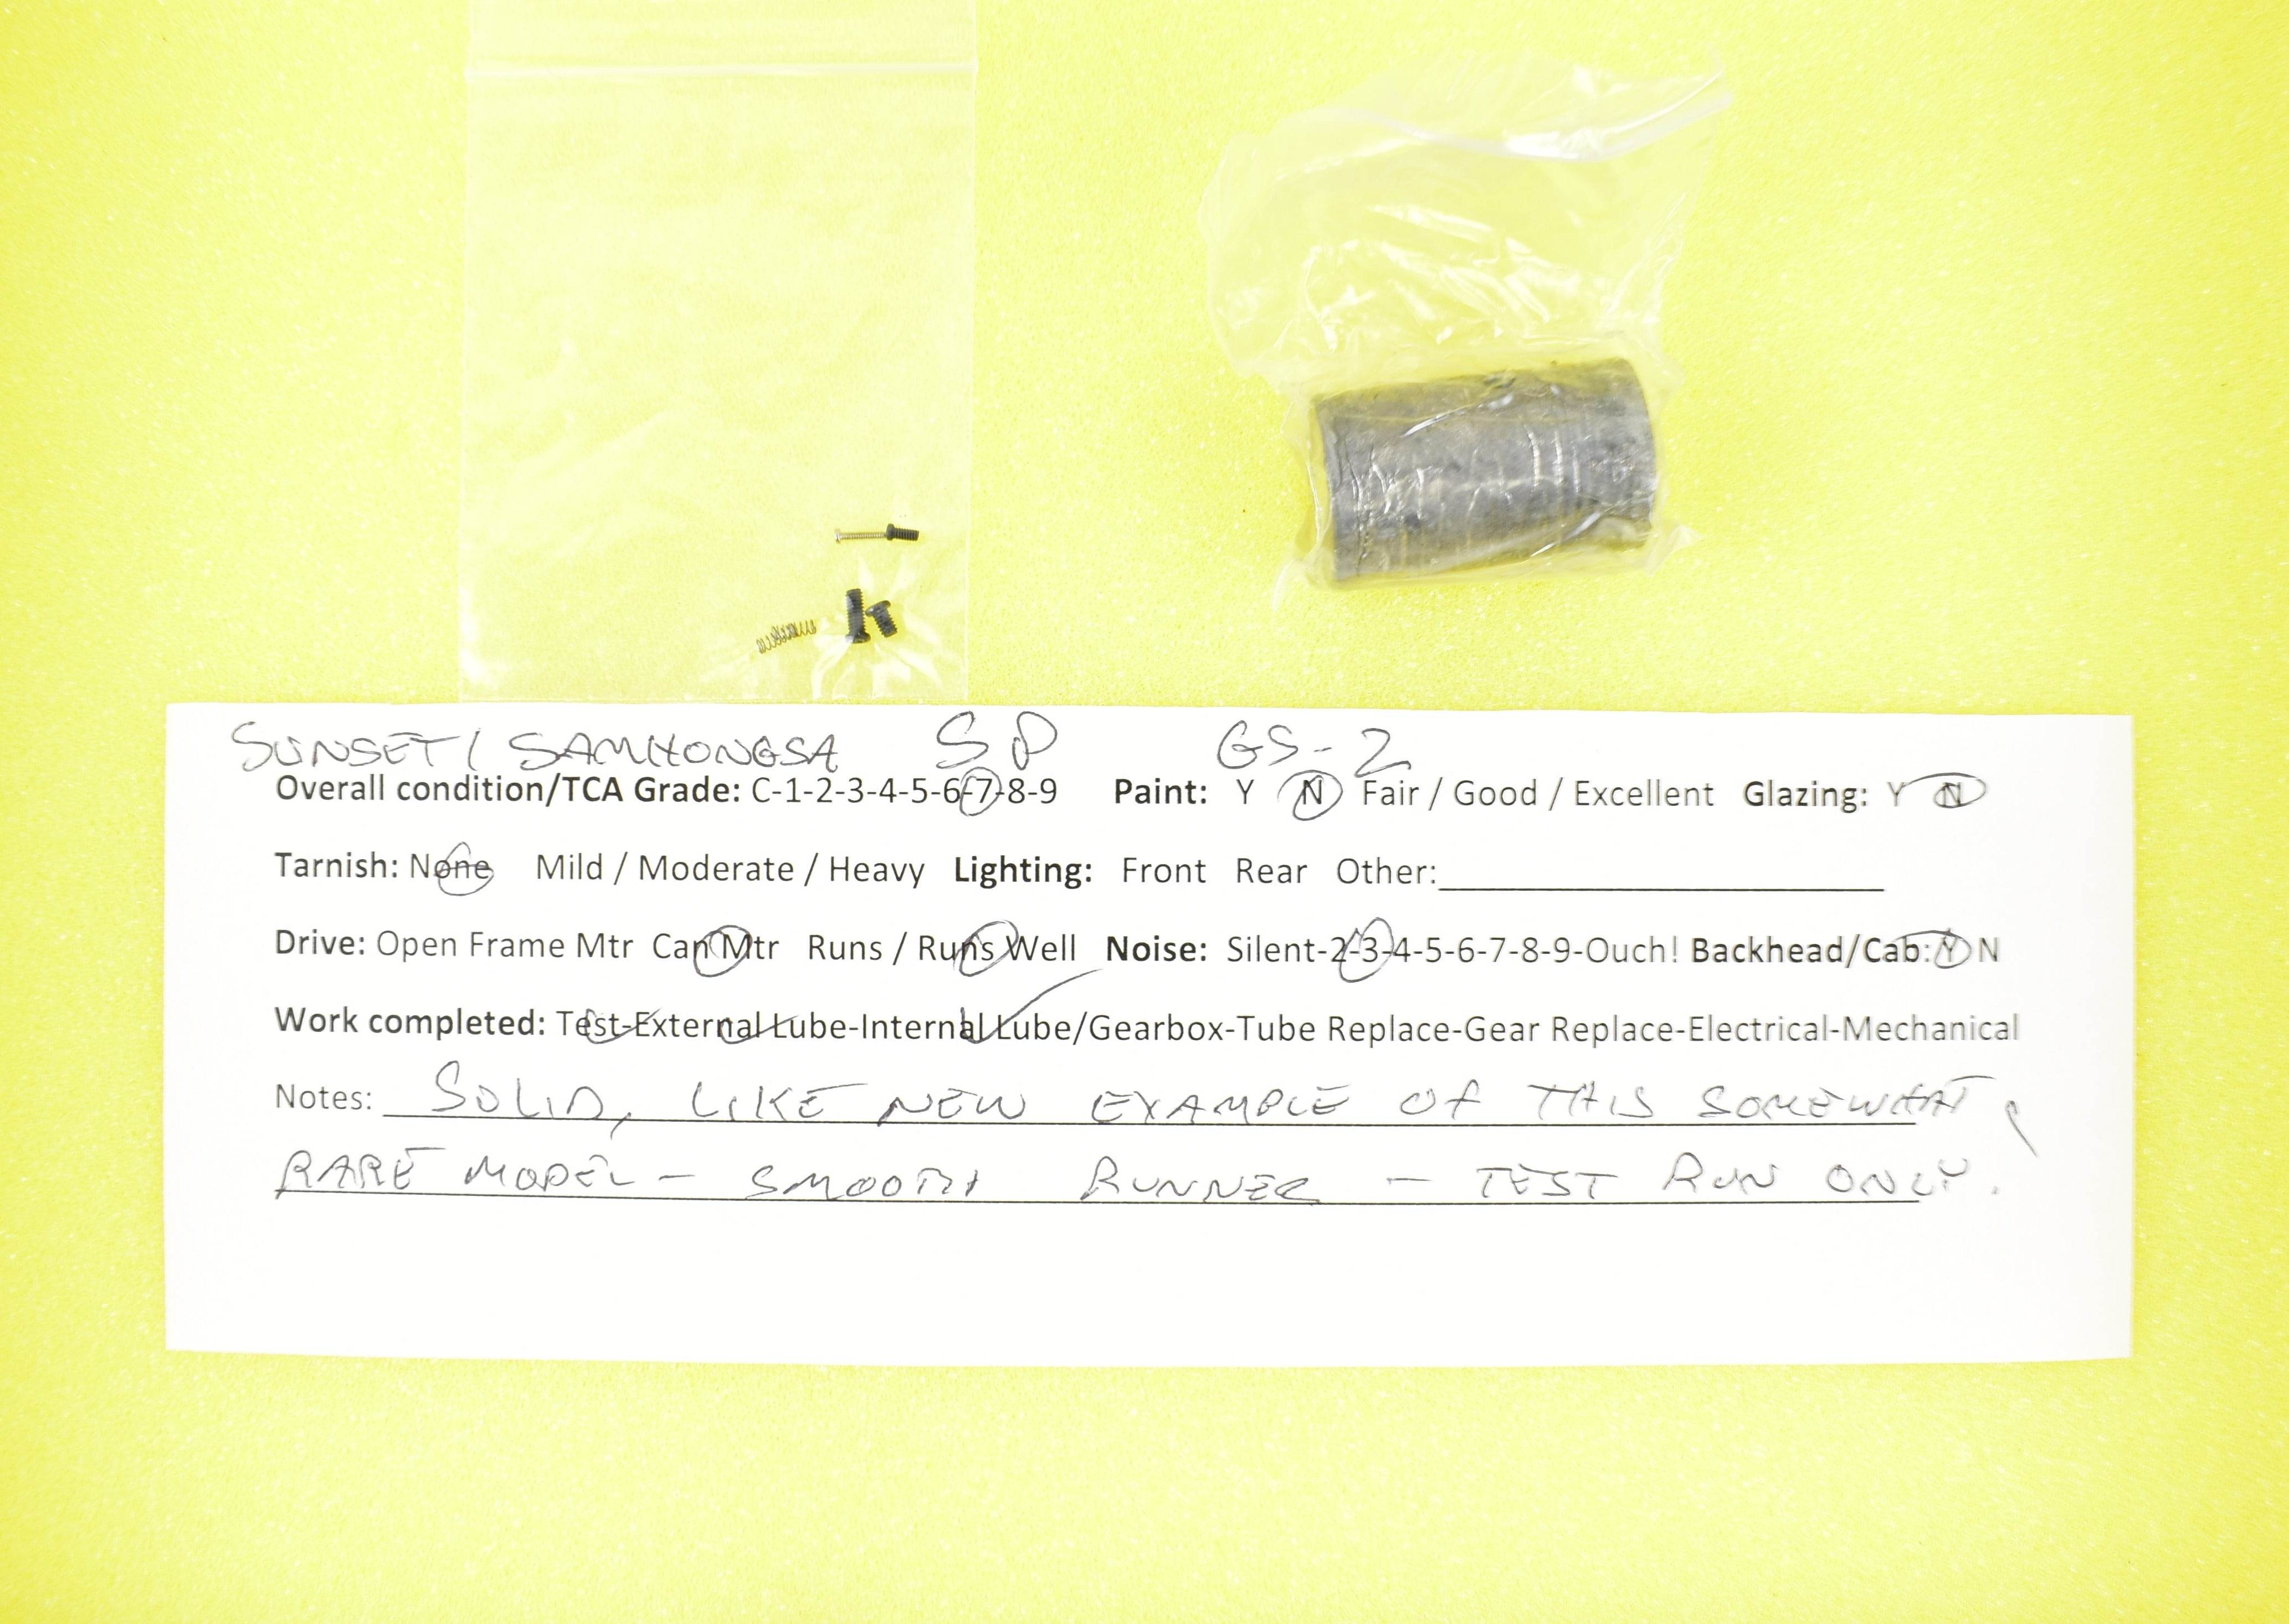 SUNSET/SAMHONGSA SP GS-2
Overall condition/TCA Grade: C-1-2-3-4-5-6-7-8-9 Paint: Y N Fair / Good / Excellent Glazing: Y N
Tarnish: None Mild / Moderate / Heavy Lighting: Front Rear Other:
Drive: Open Frame Mtr Can Mtr Runs / Runs Well Noise: Silent-2-3-4-5-6-7-8-9-Ouch! Backhead/Cab: Y N
Work completed: Test-External Lube-Internal Lube/Gearbox-Tube Replace-Gear Replace-Electrical-Mechanical
Notes: SOLID, LIKE NEW EXAMPLE OF THIS SOMEWHAT
RARE MODEL - SMOOTH RUNNER - TEST RUN ONLY.